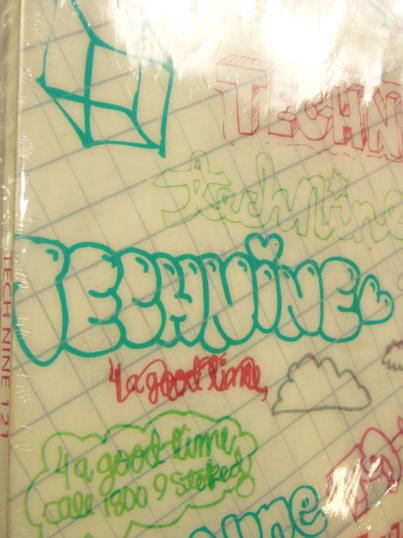 TECHN
technine
TECHNINE
TECH NINE 121
4 a good time,
4 a good time,
call 1800 9 stoked
nine